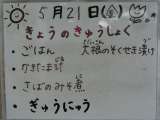 5月21日(金)
きょうのきゅうしょく
・ごはん 大根のそくせき漬け
・かきたま汁
・さばのみそ煮
・ぎゅうにゅう